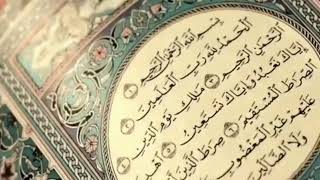 بِسْمِ اللَّهِ الرَّحْمَٰنِ الرَّحِيمِ
الْحَمْدُ لِلَّهِ رَبِّ الْعَالَمِينَ
الرَّحْمَٰنِ الرَّحِيمِ مَالِكِ يَوْمِ الدِّينِ
إِيَّاكَ نَعْبُدُ وَإِيَّاكَ نَسْتَعِينُ اهْدِنَا
الصِّرَاطَ الْمُسْتَقِيمَ صِرَاطَ الَّذِينَ
عَلَيْهِمْ غَيْرِ الْمَغْضُوبِ
وَلَا الضَّالِّينَ